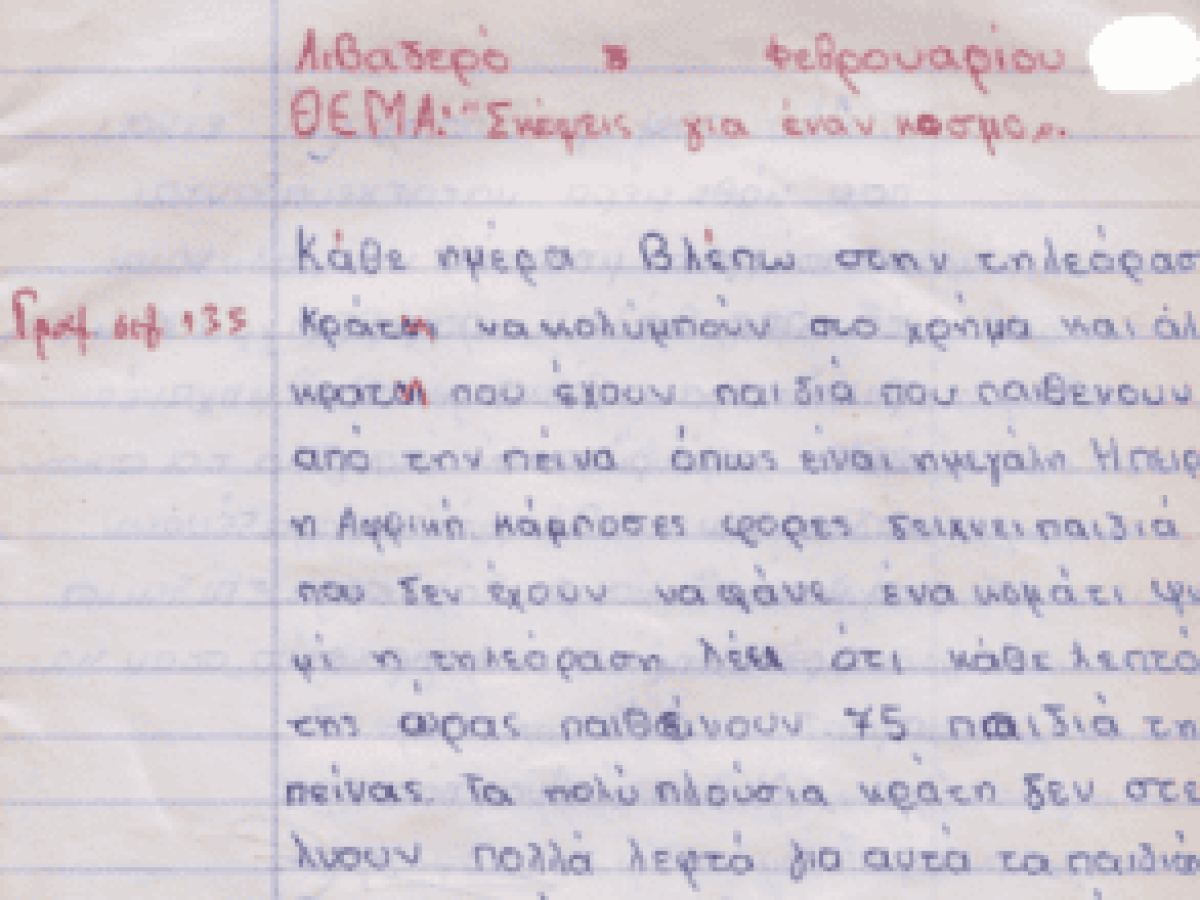 Λιβαδερό 3 Φεβρουαρίου
ΘΕΜΑ: "Σκέψεις για έναν κοσμο".
Κάθε ημέρα Βλέπω στην τηλεόρασ
Γραμ σελ 135
Κράτη να κολύμπούν στο χρήμα και άλ
κρατη που έχουν παιδιά που παιθενουν
από την πείνα όπως είναι η μεγάλη Ήπειρ
η Αφρική κάμποσες φορες δειχνει παιδιά
που δεν έχουν να φάνε ένα κομάτι ψω
μί η τηλεόραση λέει ότι κάθε λεπτό
της ώρας παιθαίνουν 75 παιδιά τη
πείνας. Τα πολύ πλούσια κράτη δεν στέ
λνουν πολλά λεφτά για αυτά τα παιδιά